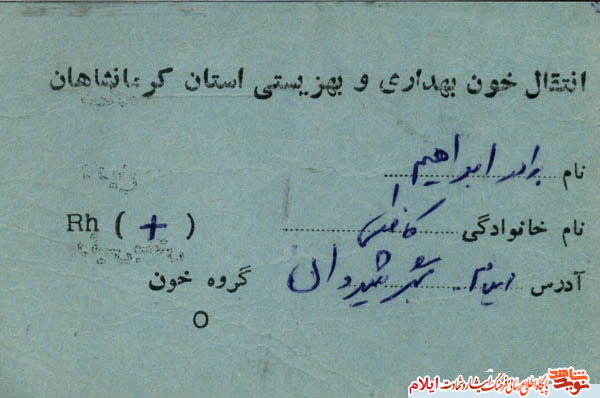 انتقال خون بهداری و بهزیستی استان کرمانشاهان
نام برادر ابراهیم
نام خانوادگی
Rh ( + )
آدرس ایلام شهر شیروان
گروه خون
O
نوید شاهد
پایگاه اطلاع رسانی فرهنگ ایثار و شهادت ایلام